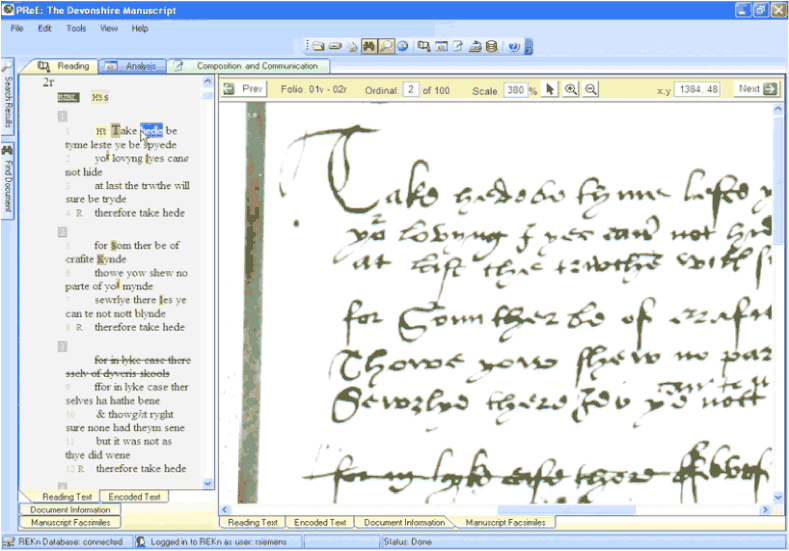 PReE: The Devonshire Manuscript
File Edit Tools View Help
Reading Analysis Composition and Communication
Search Results
Find Document
2r
H3 s
1
1 Ht Take hede be
tyme leste ye be spyede
2 yor lovyng Iyes cane
not hide
3 at last the trwthe will
sure be tryde
4 R therefore take hede
2
5 for Som ther be of
crafite Kynde
6 thowe yow shew no
parte of yor mynde
7 sewrlye there Ies ye
can te not nott blynde
8 R therefore take hede
3
for in lyke case there
sselv of dyveris skools
9 ffor in lyke case ther
selves ha hathe bene
10 & thowg/it ryght
sure none had theym sene
11 but it was not as
thye did wene
12 R therefore take hede
4
Reading Text Encoded Text
Document Information
Manuscript Facsimiles
Prev Folio. 01v - 02r Ordinal: 2 of 100 Scale: 380 % x,y 1384, 48 Next
Take hede be tyme leste y
yor lovyng Iyes can not hid
at last the trwthe will s
for Som ther be of crafit
Thowe yow shew no par
can te
Sewrlye there Ies ye nott
for in lyke case there
Reading Text Encoded Text Document Information Manuscript Facsimiles
REKn Database: connected Logged in to REKn as user: rsiemens Status: Done